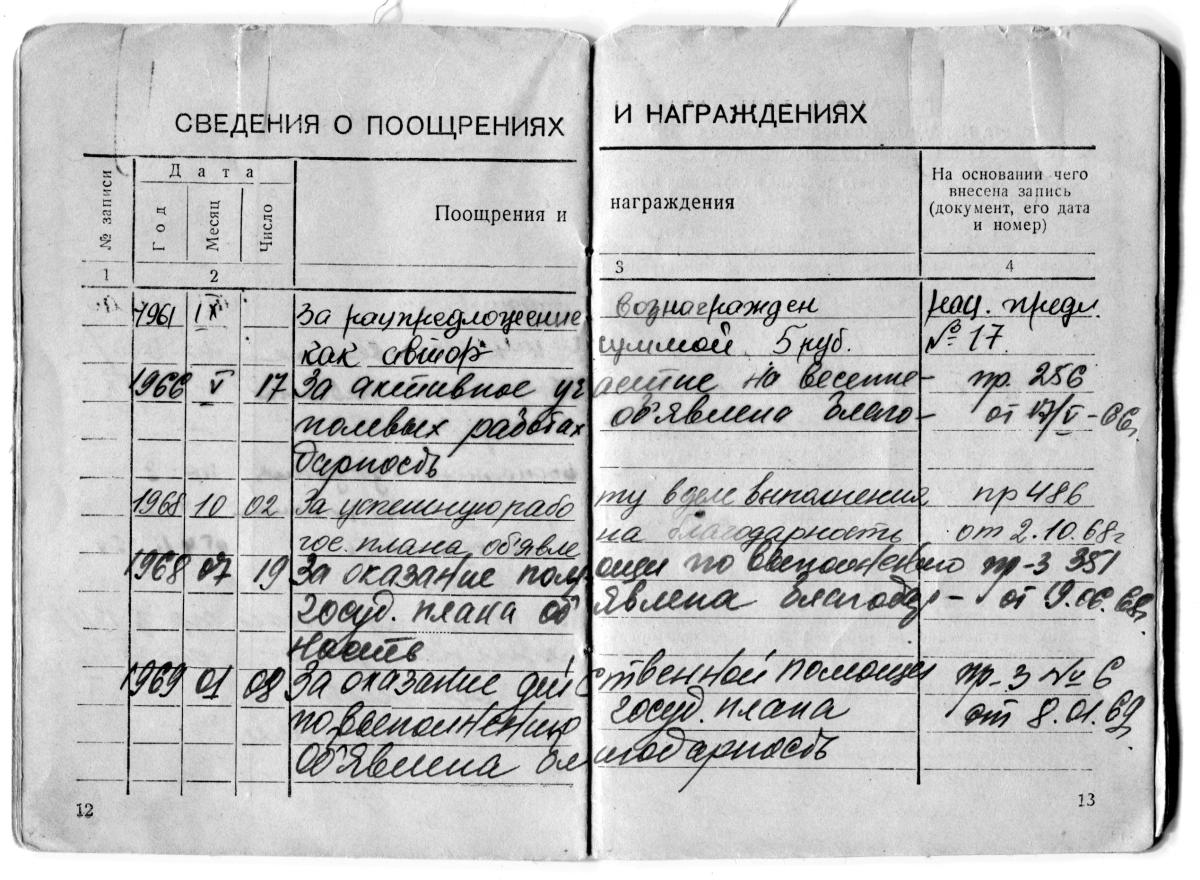 СВЕДЕНИЯ О ПООЩРЕНИЯХ И НАГРАЖДЕНИЯХ
№ записи
Дата
Год
Месяц
Число
Поощрения и награждения
На основании чего
внесена запись
(документ, его дата
и номер)
1 2 3 4
1961 IX За рацпредложение вознагражден рац. предл.
как автор суммой 5 руб. № 17
1966 V 17 За активное участие на весенне- пр. 256
полевых работах объявлена благо- от 17/V-66г.
дарность
1968 10 02 За успешную работу в деле выполнения пр 486
гос. плана объявлена благодарность от 2.10.68г
1968 07 19 За оказание помощи по выполнению пр-з 351
госуд. плана объявлена благодар- от 19.06.68г.
ность
1969 01 08 За оказание действенной помощи пр-з № 6
по выполнению госуд. плана от 8.01.69г.
объявлена благодарность
12 13